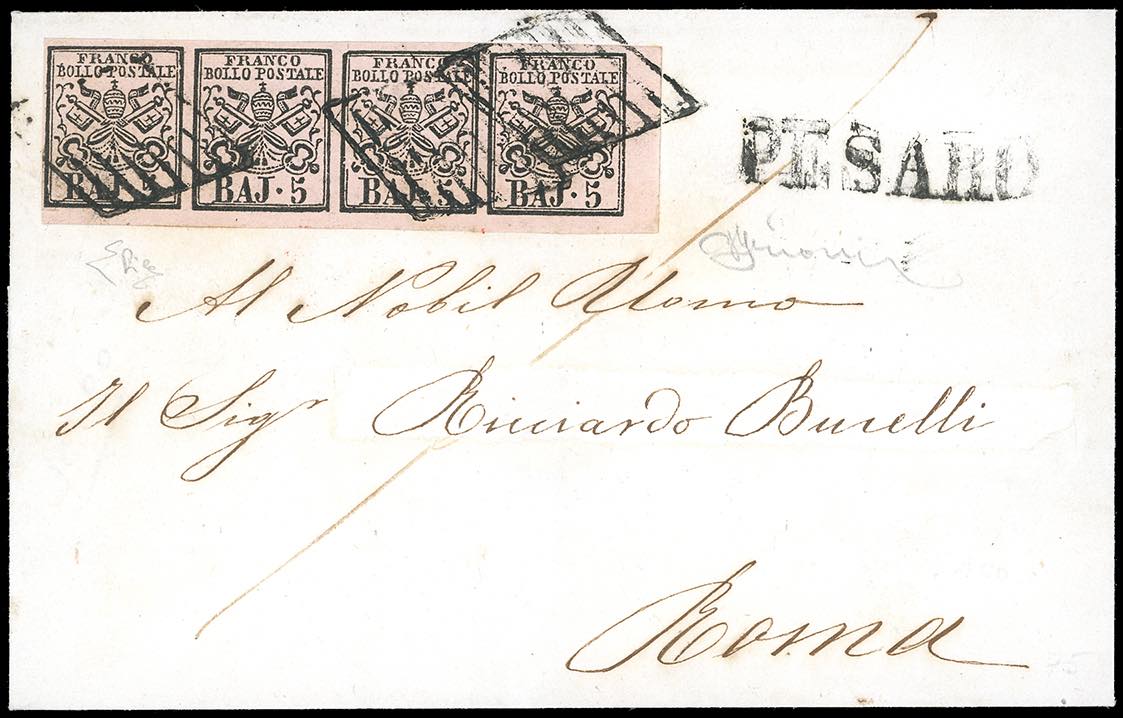 FRANCO FRANCO FRANCO FRANCO
BOLLO POSTALE BOLLO POSTALE BOLLO POSTALE BOLLO POSTALE
BAJ BAJ·5 BAJ 5 BAJ·5
PESARO
Al Nobil Uomo
Il Sigr Ricciardo Buselli
Roma
75